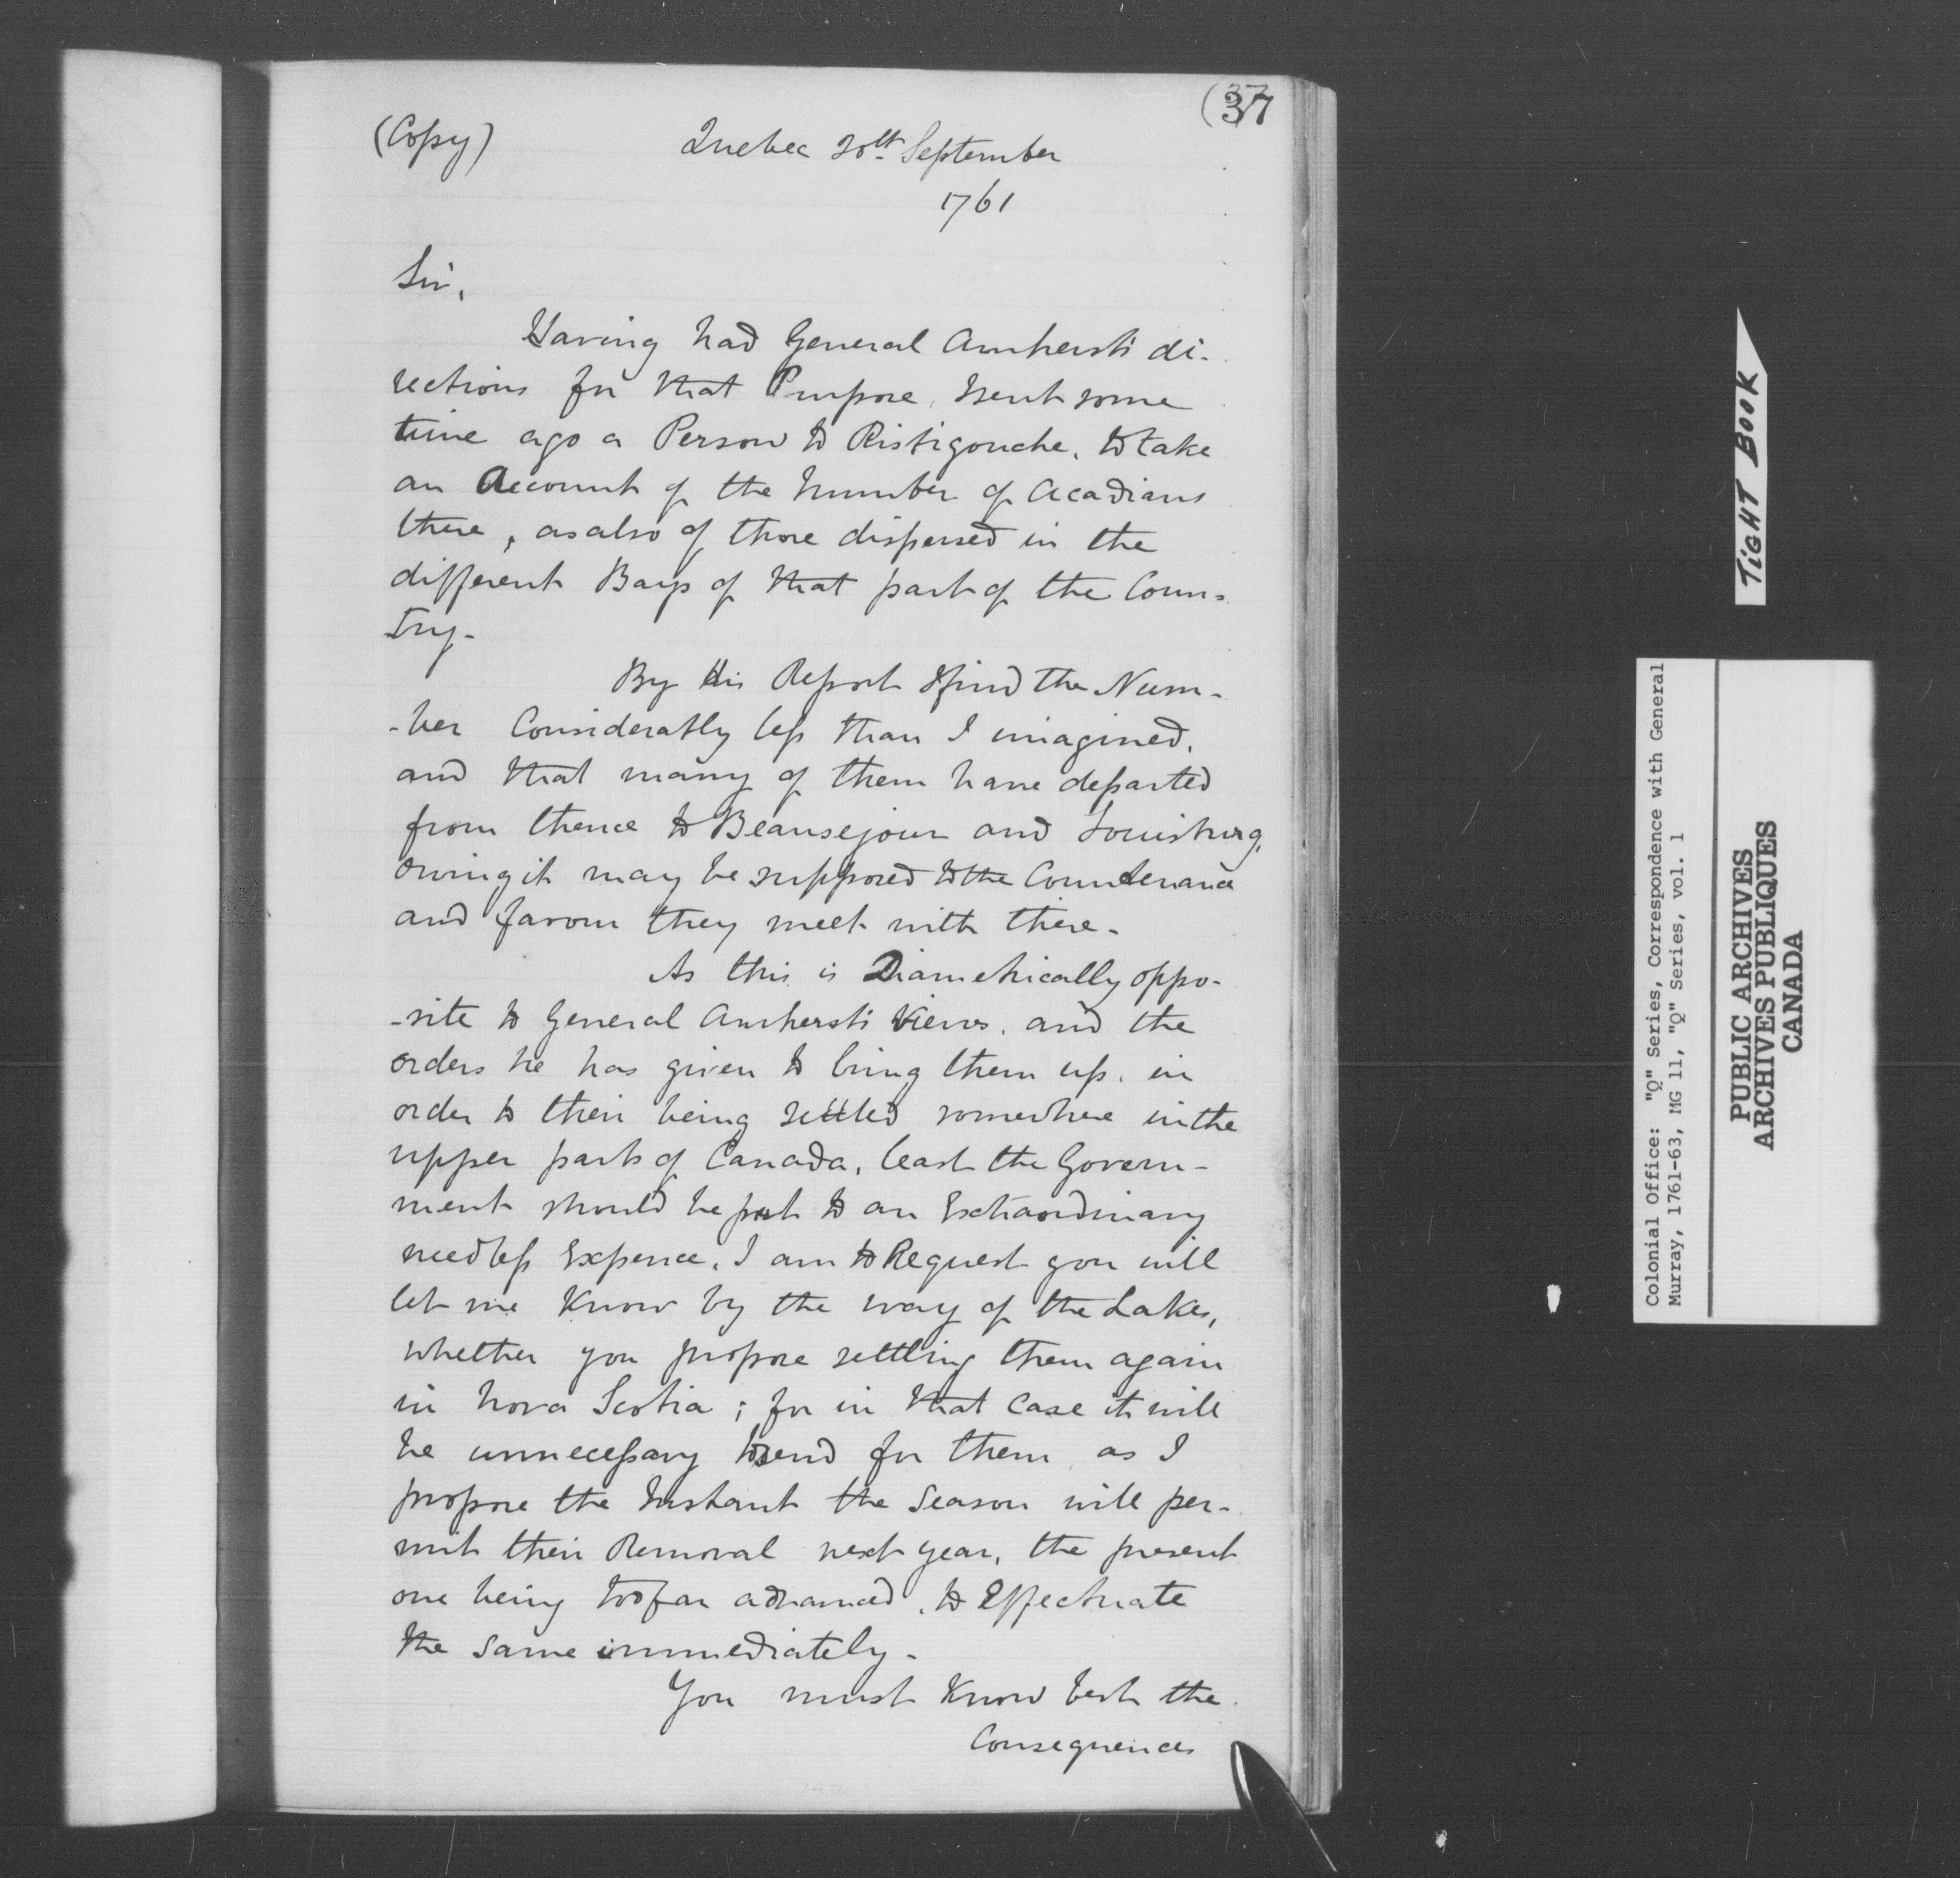 (37
37
(Copy)
Quebec 20th September
1761
Sir,
Having had General Amherst's di-
rections for that Purpose, I sent some
time ago a Person to Ristigouche, to take
an Account of the Number of Acadians
there, as also of those dispersed in the
different Bays of that part of the Coun-
try-
By his Report I find the Num-
-ber Considerably less than I imagined,
and that many of them have departed
from thence to Beausejour and Louisburg,
owing it may be supposed to the Countenance
and favour they meet with there-
As this is Diametrically oppo-
-site to General Amherst's Views, and the
orders he has given to bring them up, in
order to their being settled somewhere in the
upper part of Canada, least the Govern-
ment should be put to an Extraordinary
needless Expence, I am to Request you will
let me know by the way of the Lakes,
whether you propose settling them again
in Nova Scotia; for in that case it will
be unnecessary to send for them, as I
propose the Instant the Season will per-
mit their Removal next year, the present
one being too far advanced, to Effectuate
the same immediately-
You must know best the
Consequences
TIGHT BOOK
Colonial Office: "Q" Series, Correspondence with General
Murray, 1761-63, MG 11, "Q" Series, vol. 1
PUBLIC ARCHIVES
ARCHIVES PUBLIQUES
CANADA